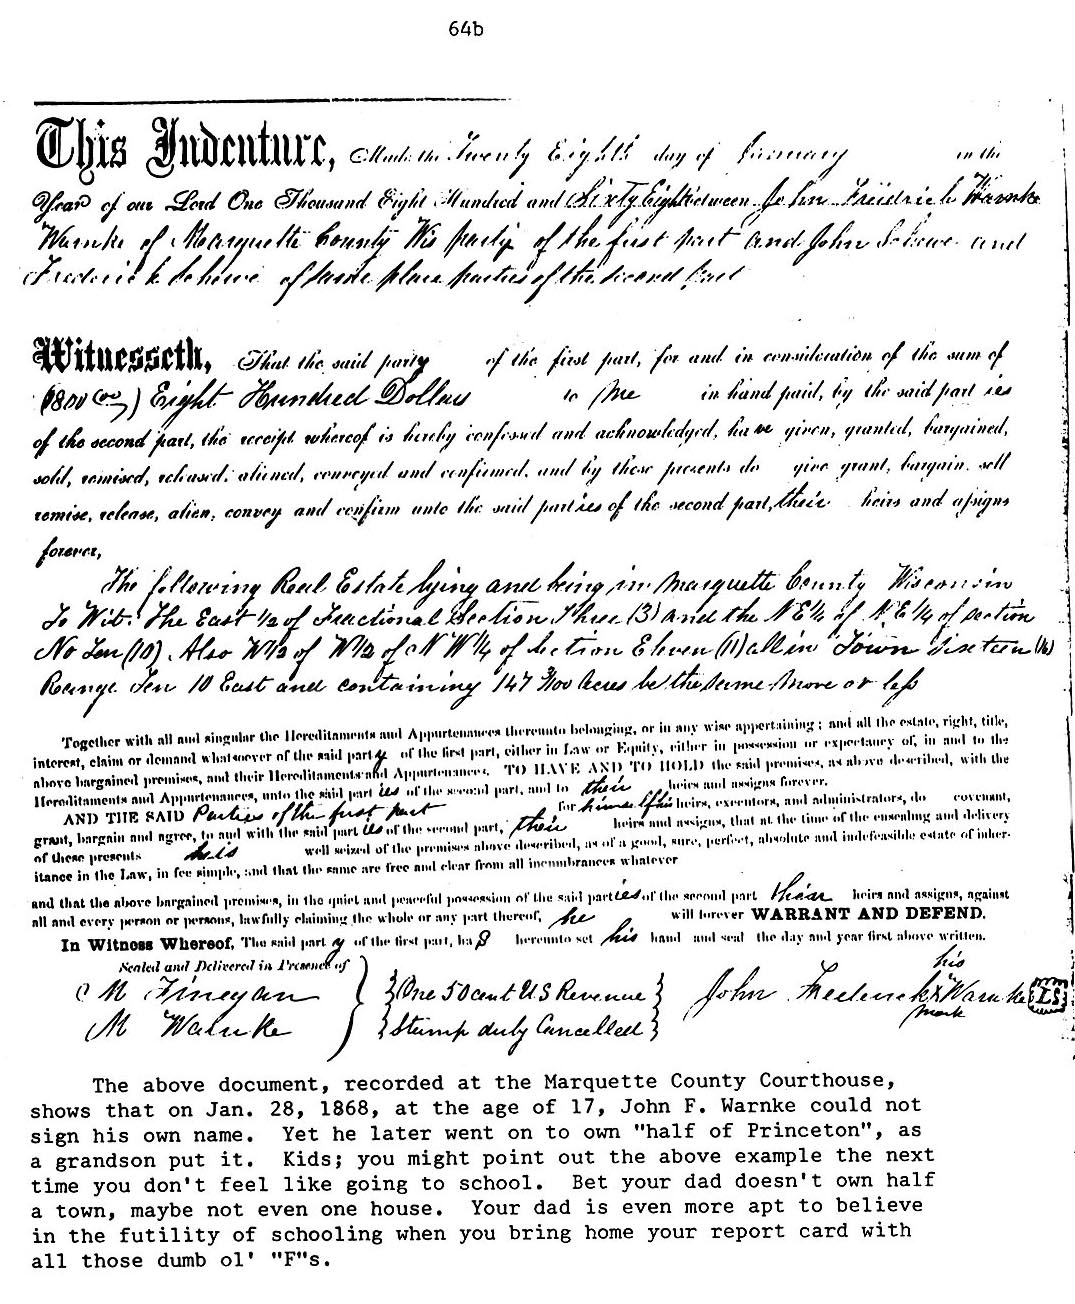 64b
This Indenture, Made the Twenty Eighth day of January in the
Year of our Lord One Thousand Eight Hundred and Sixty Eight between John Friedrich Warnke
Warnke of Marquette County Wis party of the first part and John Schewe and
Frederick Schewe of same place parties of the second part
Witnesseth, That the said party of the first part, for and in consideration of the sum of
($800 00) Eight Hundred Dollars to Me in hand paid, by the said part ies
of the second part, the receipt whereof is hereby confessed and acknowledged, have given, granted, bargained,
sold, remised, released, aliened, conveyed and confirmed, and by these presents do give grant, bargain, sell
remise, release, alien, convey and confirm unto the said parties of the second part, their heirs and assigns
forever,
The following Real Estate lying and being in Marquette County Wisconsin
To Wit: The East 1/2 of Fractional Section Three (3) and the NE 1/4 of NE 1/4 of section
No Ten (10) Also W 1/2 of W 1/2 of NW 1/4 of Section Eleven (11) all in Town Sixteen (16)
Range Ten 10 East and containing 147 acres be the same more or less
Together with all and singular the Hereditaments and Appurtenances thereunto belonging, or in any wise appertaining; and all the estate, right, title,
interest, claim or demand whatsoever of the said party of the first part, either in Law or Equity, either in possession or expectancy of, in and to the
above bargained premises, and their Hereditaments and Appurtenances. TO HAVE AND TO HOLD the said premises, as above described, with the
Hereditaments and Appurtenances, unto the said part ies of the second part, and to their heirs and assigns forever.
AND THE SAID Parties of the first part for himself his heirs, executors, and administrators, do covenant,
grant, bargain and agree, to and with the said part ies of the second part, their heirs and assigns, that at the time of the ensealing and delivery
of these presents he is well seized of the premises above described, as of a good, sure, perfect, absolute and indefeasible estate of inher-
itance in the Law, in fee simple, and that the same are free and clear from all incumbrances whatever
and that the above bargained premises, in the quiet and peaceful possession of the said parties of the second part their heirs and assigns, against
all and every person or persons, lawfully claiming the whole or any part thereof, he will forever WARRANT AND DEFEND.
In Witness Whereof, The said party of the first part, has hereunto set his hand and seal the day and year first above written.
Sealed and Delivered in Presence of
M Finegan
M Warnke
One 50 cent U S Revenue
Stamp duly Cancelled
John Frederick his X mark Warnke LS
The above document, recorded at the Marquette County Courthouse,
shows that on Jan. 28, 1868, at the age of 17, John F. Warnke could not
sign his own name. Yet he later went on to own "half of Princeton", as
a grandson put it. Kids; you might point out the above example the next
time you don't feel like going to school. Bet your dad doesn't own half
a town, maybe not even one house. Your dad is even more apt to believe
in the futility of schooling when you bring home your report card with
all those dumb ol' "F"s.